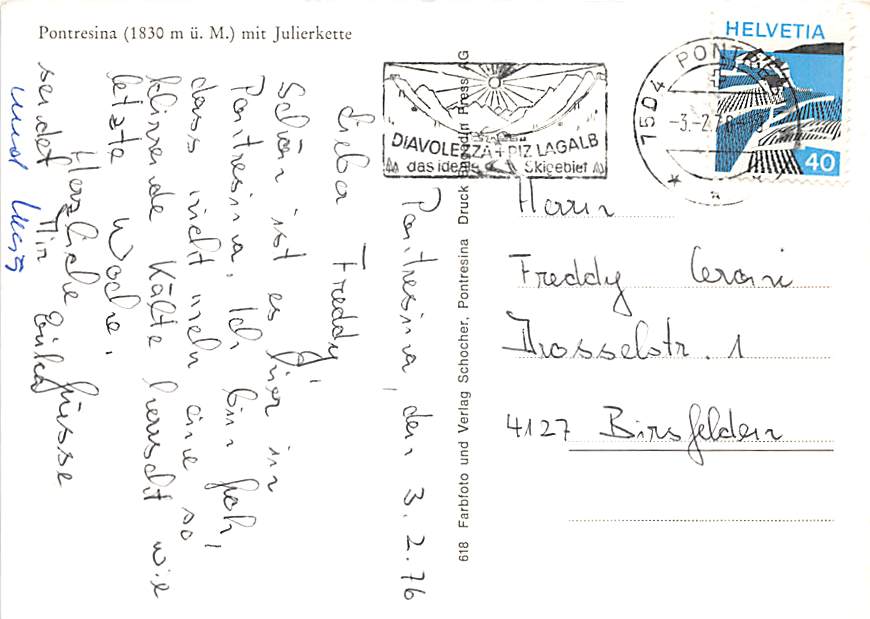 Pontresina (1830 m ü. M.) mit Julierkette
Pontresina, den 3.2.76
Lieber Freddy,
Schön ist es hier in
Pontresina. Ich bin froh,
dass nicht mehr eine so
klirrende Kälte herrscht wie
letzte Woche.
Herzliche Grüsse
sendet Dir
und
618 Farbfoto und Verlag Schocher, Pontresina Druck Press AG
DIAVOLEZZA + PIZ LAGALB
das ideale Skigebiet
7504 PONTRES
-3.-2.76
HELVETIA
40
Herrn
Freddy
Drosselstr. 1
4127 Birsfelden